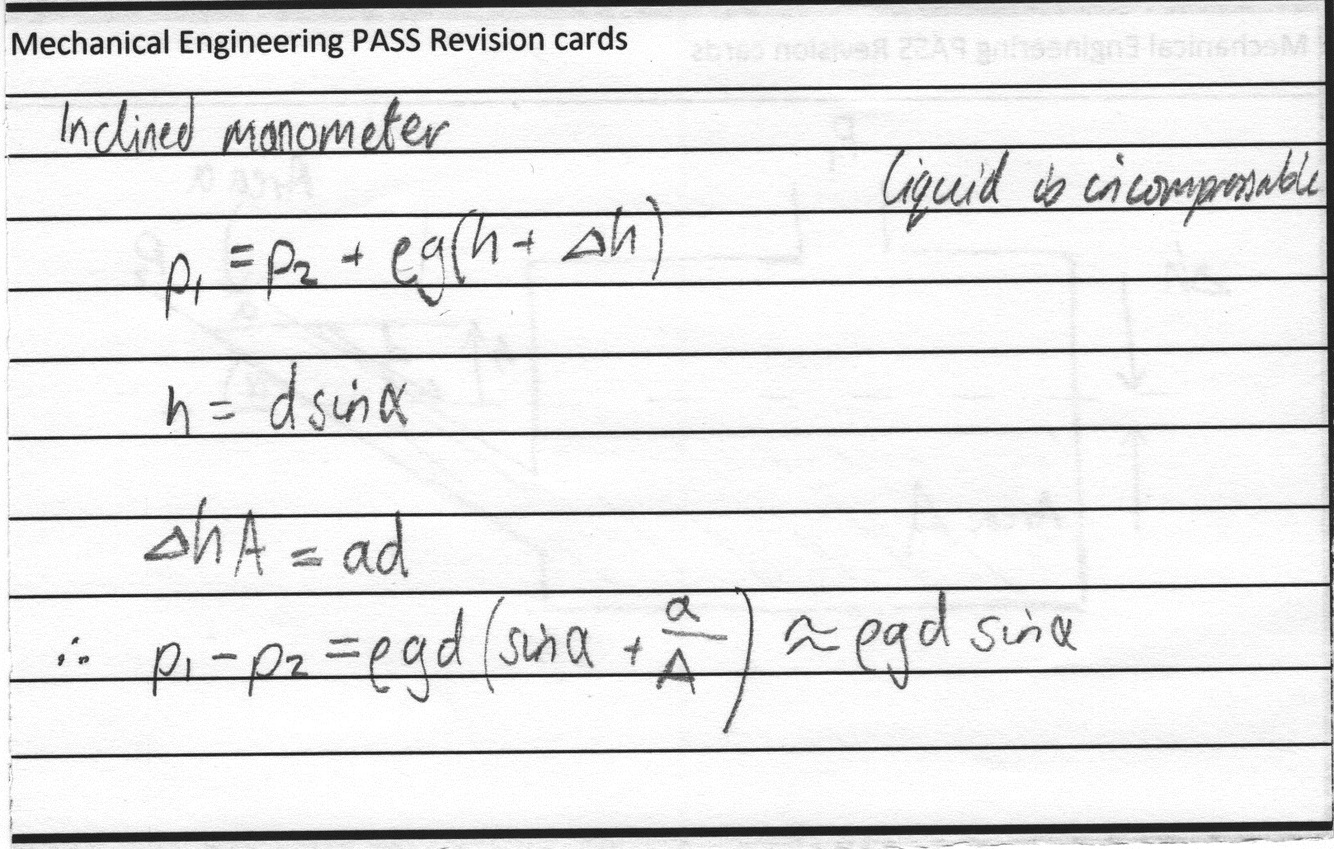 Mechanical Engineering PASS Revision cards
Inclined manometer
liquid is incompressable
p₁ = p₂ + ρg(h + Δh)
h = d sinα
ΔhA = ad
∴ p₁ - p₂ = ρgd(sinα + a/A) ≈ ρgd sinα